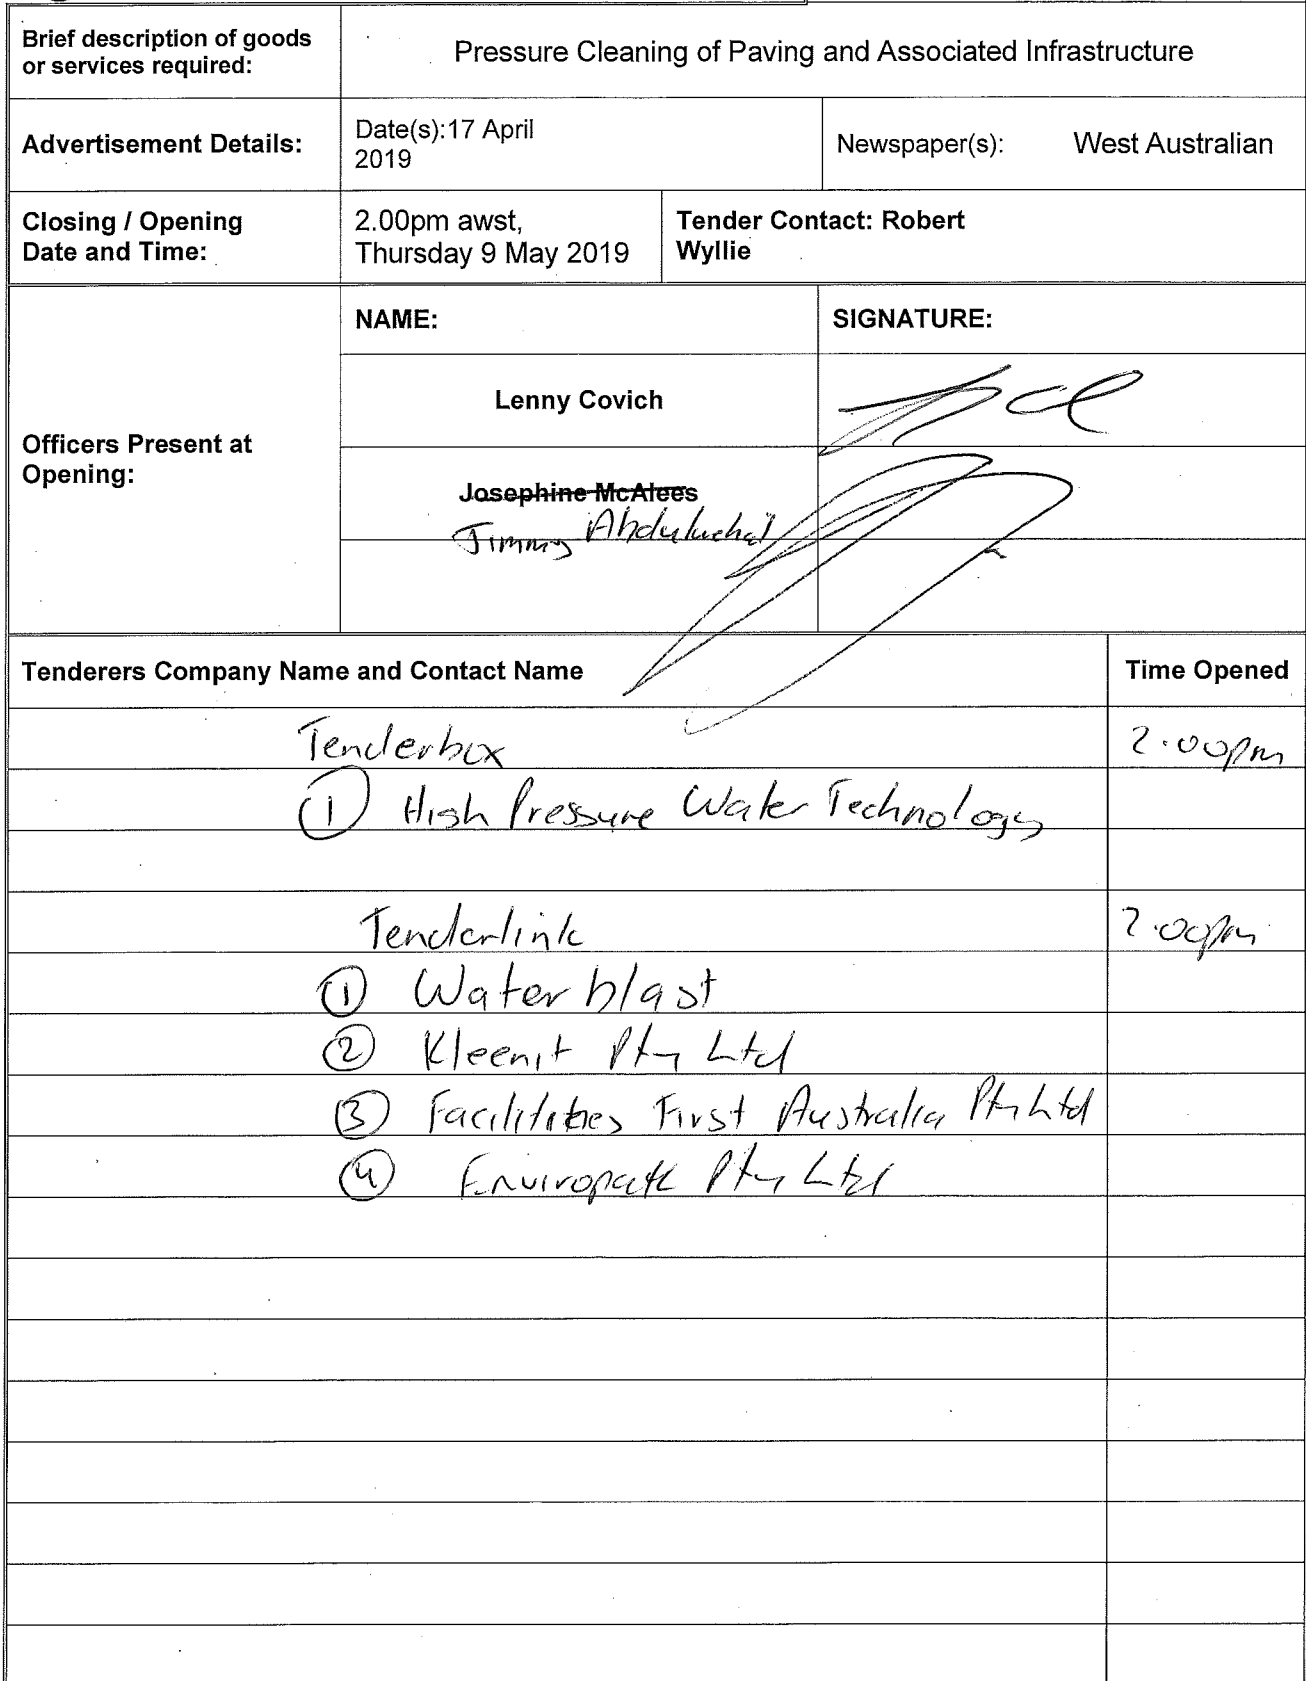 Brief description of goods
or services required:
Pressure Cleaning of Paving and Associated Infrastructure
Advertisement Details:
Date(s):17 April
2019
Newspaper(s): West Australian
Closing / Opening
Date and Time:
2.00pm awst,
Thursday 9 May 2019
Tender Contact: Robert
Wyllie
Officers Present at
Opening:
NAME:
SIGNATURE:
Lenny Covich
Josephine McAlees
Jimmy
Tenderers Company Name and Contact Name
Time Opened
Tenderbox 2.00pm
① High Pressure Water Technology
Tenderlink 2.00pm
① Waterblast
② Kleenit Pty Ltd
③ Facilities First Australia Pty Ltd
④ Enviropath Pty Ltd